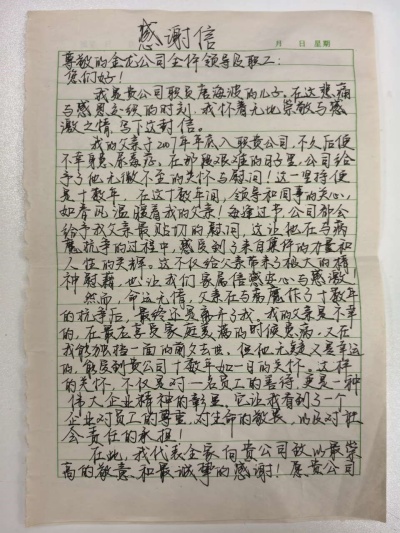 感谢信
月 日 星期
尊敬的金龙公司全体领导及职工：
您们好！
我是贵公司职员唐海波的儿子。在这悲痛
与感恩交织的时刻，我怀着无比崇敬与感
激之情，写下这封信。
我的父亲于2007年年底入职贵公司，不久后便
不幸身患尿毒症。在那段艰难的日子里，公司给
予了他无微不至的关怀与慰问！这一坚持便
是十数年，在这十数年间，领导和同事的关心，
如春风温暖着我的父亲！每逢过节，公司都会
给予我父亲最贴切的慰问，这让他在与病
魔抗争的过程中，感受到了来自集体的力量和
人性的光辉。这不仅给父亲带来了极大的精
神慰藉，也让我们家属倍感安心与感激！
然而，命运无情，父亲在与病魔作了十数年
的抗争后，最终还是离开了我，我的父亲是不幸
的，在最应享受家庭美满的时候患病，又在
我能独挡一面的前夕去世。但他无疑又是幸运
的，能受到贵公司十数年如一日的关怀。这样
的关怀，不仅是对一名员工的善待，更是一种
伟大企业精神的彰显。它让我看到了一个
企业对员工的尊重，对生命的敬畏，以及对社
会责任的承担！
在此，我代表全家向贵公司致以最崇
高的敬意和最诚挚的感谢！愿贵公司